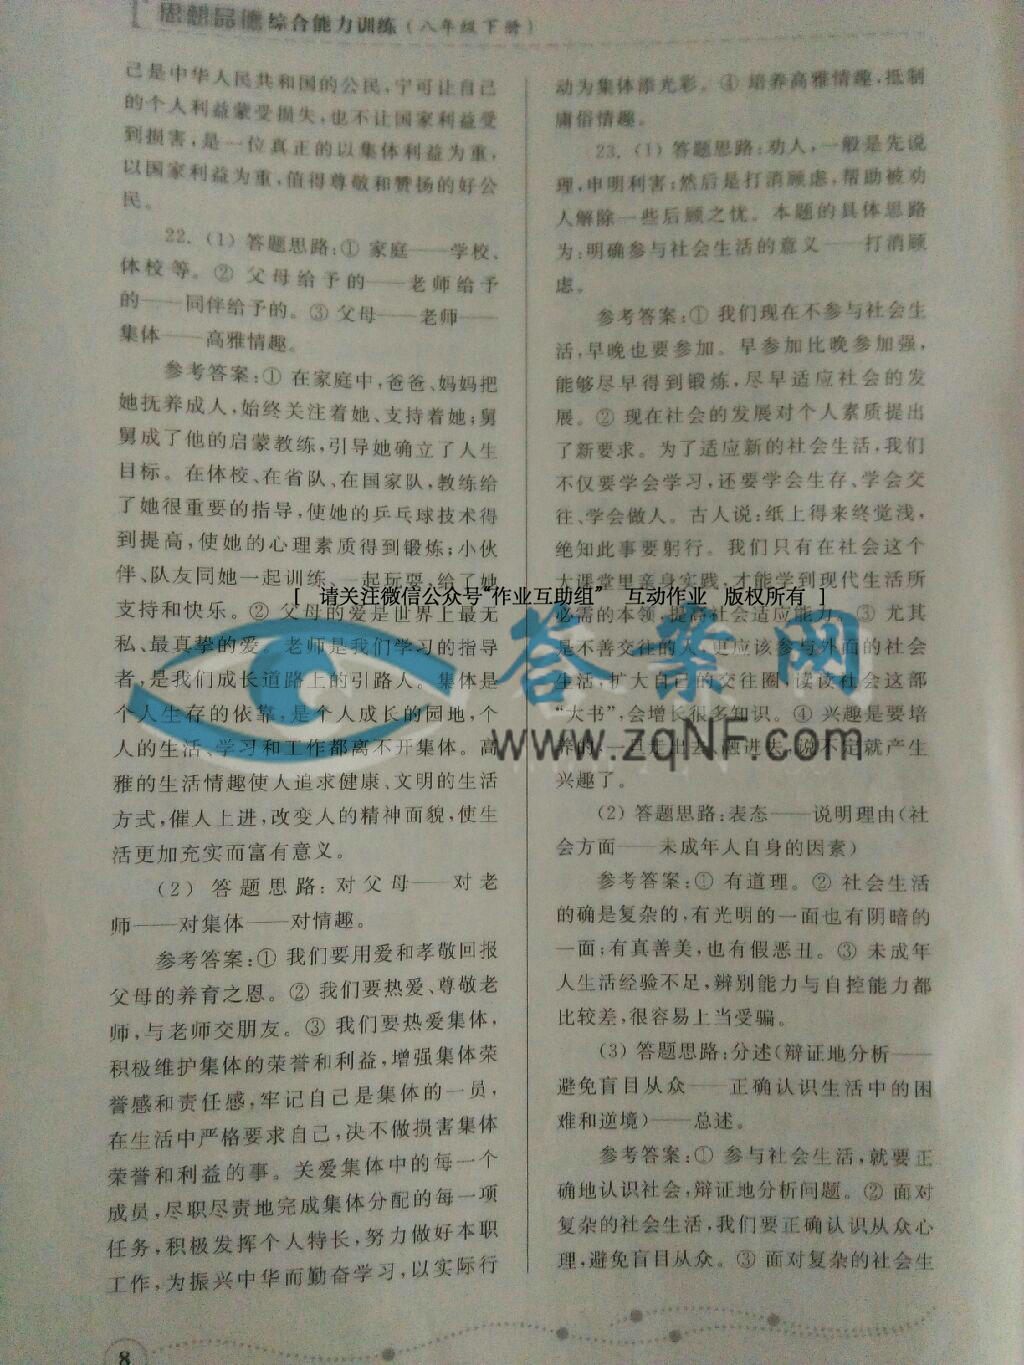 思想品德综合能力训练(八年级下册)
己是中华人民共和国的公民,宁可让自己
的个人利益蒙受损失,也不让国家利益受
到损害,是一位真正的以集体利益为重,
以国家利益为重,值得尊敬和赞扬的好公
民。
22.(1)答题思路:① 家庭——学校、
体校等。② 父母给予的——老师给予
的——同伴给予的。③ 父母——老师——
集体——高雅情趣。
参考答案:① 在家庭中,爸爸、妈妈把
她抚养成人,始终关注着她、支持着她;舅
舅成了他的启蒙教练,引导她确立了人生
目标。在体校、在省队、在国家队,教练给
了她很重要的指导,使她的乒乓球技术得
到提高,使她的心理素质得到锻炼;小伙
伴、队友同她一起训练、一起玩耍,给了她
支持和快乐。② 父母的爱是世界上最无
私、最真挚的爱。老师是我们学习的指导
者,是我们成长道路上的引路人。集体是
个人生存的依靠,是个人成长的园地,个
人的生活、学习和工作都离不开集体。高
雅的生活情趣使人追求健康、文明的生活
方式,催人上进,改变人的精神面貌,使生
活更加充实而富有意义。
(2)答题思路:对父母——对老
师——对集体——对情趣。
参考答案:① 我们要用爱和孝敬回报
父母的养育之恩。② 我们要热爱、尊敬老
师,与老师交朋友。③ 我们要热爱集体,
积极维护集体的荣誉和利益,增强集体荣
誉感和责任感,牢记自己是集体的一员,
在生活中严格要求自己,决不做损害集体
荣誉和利益的事。关爱集体中的每一个
成员,尽职尽责地完成集体分配的每一项
任务,积极发挥个人特长,努力做好本职
工作,为振兴中华而勤奋学习,以实际行
动为集体添光彩。④ 培养高雅情趣,抵制
庸俗情趣。
23.(1)答题思路:劝人,一般是先说
理,申明利害;然后是打消顾虑,帮助被劝
人解除一些后顾之忧。本题的具体思路
为:明确参与社会生活的意义——打消顾
虑。
参考答案:① 我们现在不参与社会生
活,早晚也要参加。早参加比晚参加强,
能够尽早得到锻炼,尽早适应社会的发
展。② 现在社会的发展对个人素质提出
了新要求。为了适应新的社会生活,我们
不仅要学会学习,还要学会生存、学会交
往、学会做人。古人说:纸上得来终觉浅,
绝知此事要躬行。我们只有在社会这个
大课堂里亲身实践,才能学到现代生活所
必需的本领,提高社会适应能力。③ 尤其
是不善交往的人,更应该参与外面的社会
生活,扩大自己的交往圈,读读社会这部
“大书”,会增长很多知识。④ 兴趣是要培
养的,一旦走出去、融进去,说不定就产生
兴趣了。
(2)答题思路:表态——说明理由(社
会方面——未成年人自身的因素)
参考答案:① 有道理。② 社会生活
的确是复杂的,有光明的一面也有阴暗的
一面;有真善美,也有假恶丑。③ 未成年
人生活经验不足,辨别能力与自控能力都
比较差,很容易上当受骗。
(3)答题思路:分述(辩证地分析——
避免盲目从众——正确认识生活中的困
难和逆境)——总述。
参考答案:① 参与社会生活,就要正
确地认识社会,辩证地分析问题。② 面对
复杂的社会生活,我们要正确认识从众心
理,避免盲目从众。③ 面对复杂的社会生
[ 请关注微信公众号“作业互助组” 互动作业 版权所有 ]
答案网
www.zqNF.com
8